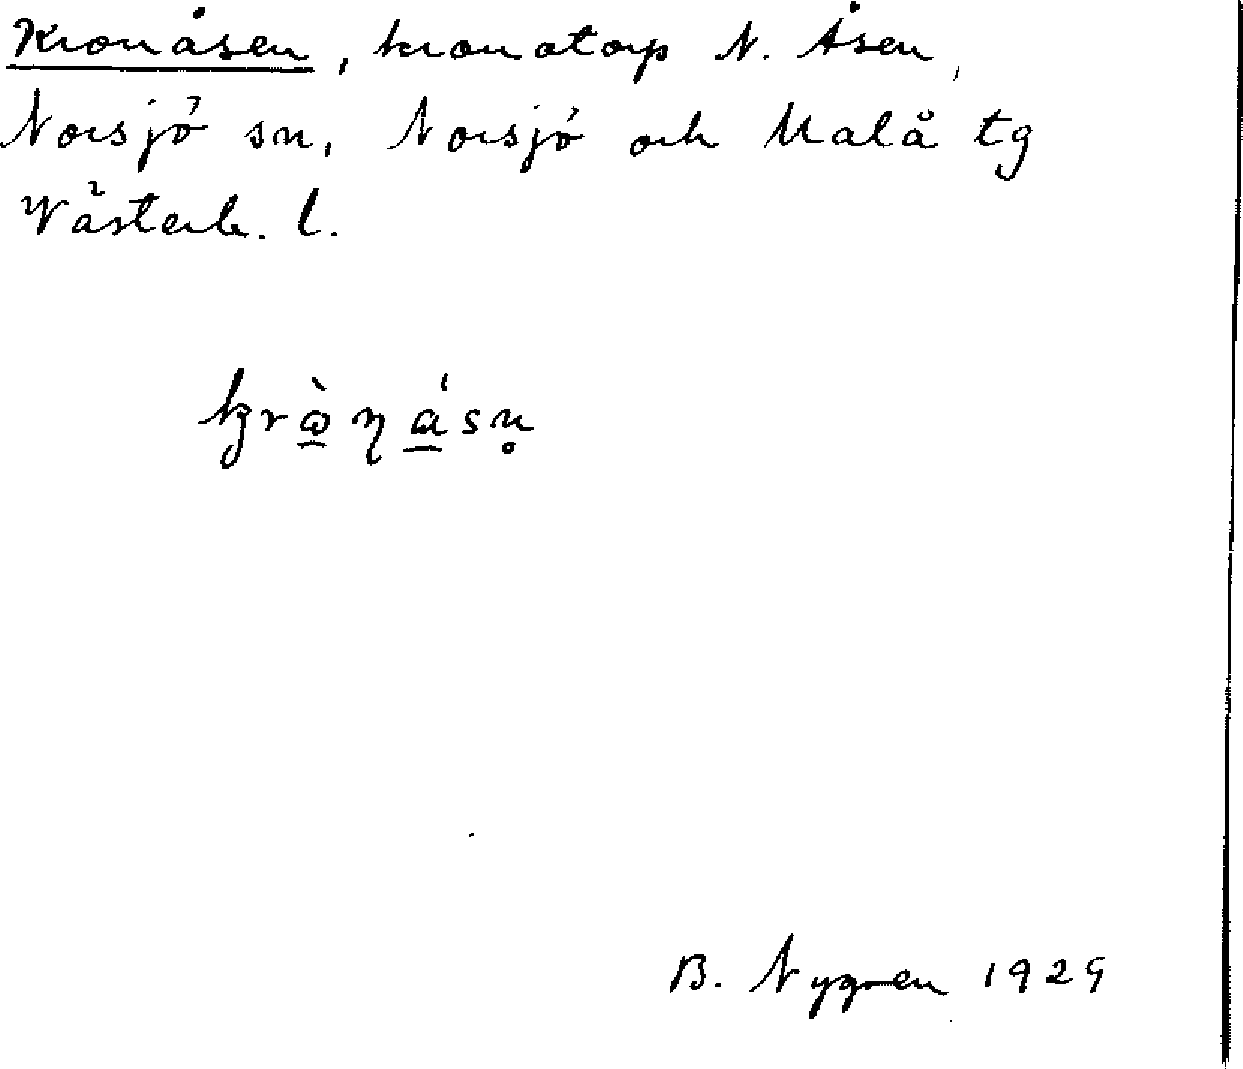 Kronåsen, kronotorp N. Åsen,
Norsjö sn, Norsjö och Malå tg
Västerb. l.
B. Nygren 1929